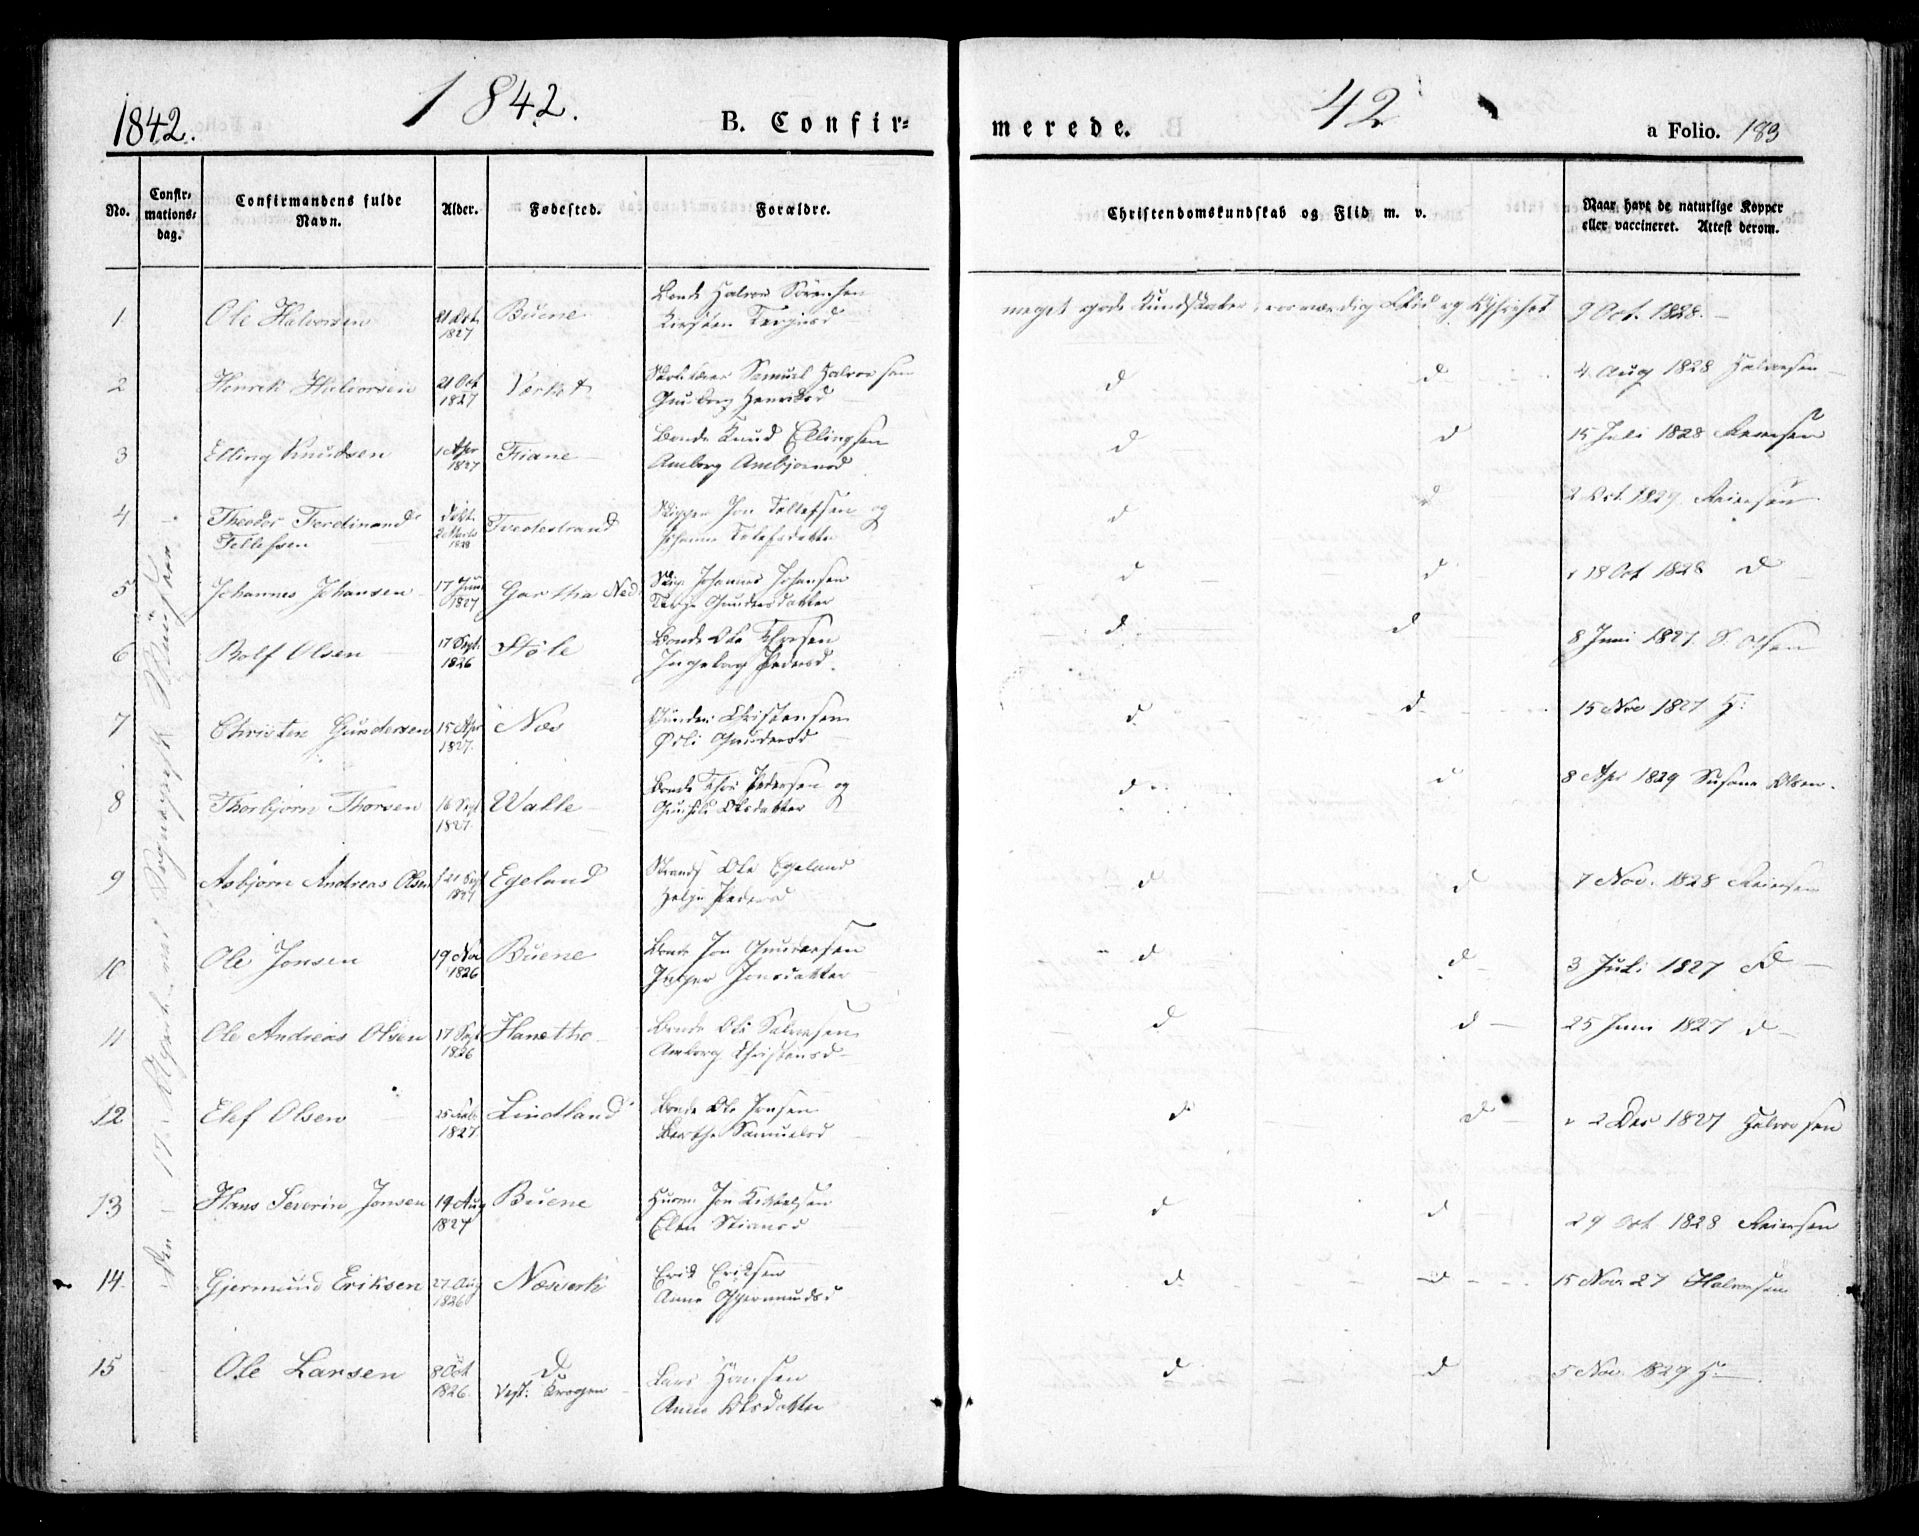 1842.
1842.
B. Confir=
merede.
42
a Folio. 183
No.
Confir=
mations=
dag.
Confirmandens fulde
Navn.
Alder.
Fødested.
Forældre.
Christendomskundskab og Flid m. v.
Naar havt de naturlige Kopper
eller vaccineret. Attest derom.
1 Ole Halvorsen 21 Oct. 1827 Buene
Bonde Halvor Sørensen
Kirsten Tergusd
meget gode Kundskaber, Flid og 9 Oct. 1828.
2 Henrik Halvorsen 21 Oct 1827 Værket
Samuel Halvorsen
Gunborg Henriksd
d d 4 Aug 1828 Halvorsen
3 Elling Knudsen 1 Apr 1827 Fiane
Bonde Knud Ellingsen
Amborg Ambjørnsd
d d 15 Juli 1828 Reiersen
4 Theodor Ferdinand 2 Marts 1828 Tvedestrand
Tellefsen
Skipper Jon Tellefsen og
Johanne Telefsdatter
d d 2 Oct. 1829 Reiersen
5 Johannes Johansen 17 Juni 1827 Gartha Ned
Johannes Johansen
Gundersdatter
d d 18 Oct 1828 d
6 Rolf Olsen 17 Sept. 1826 Støle
Bonde Ole
Ingeborg Pedersd.
d d 8 Juni 1827 S. Olsen
7 Christen Gundersen 15 Apr 1827. Næs
Gunder Christensen
Gundersd
d d 15 Nov 1827 H:
8 Thorbjørn Thorsen 16 Sept 1827. Walle
Bonde Thor Pedersen og
Gunhild Olsdatter
d d 8 Apr 1829 Susane Olsen.
9 Asbjørn Andreas Olsen 21 Sept 1827 Egeland
Ole Egeland
Helje Pedersd
d d 7 Nov. 1828 Reiersen
10 Ole Jonsen 19 Nov 1826 Buene
Bonde Jon Gundersen
Inger Jonsdatter
d d 3 Juli 1827 d
11 Ole Andreas Olsen 17 Sept 1826 Hanetho
Bonde Ole Salvesen
Amborg Christensd
d d 25 Juni 1827 d
12 Elef Olsen 25 Feb. 1827 Lindland
Bonde Ole Jensen
Berthe Samuelsd
d d 2 Dec 1827 Halvorsen
13 Hans Severin Jonsen 19 Aug 1827 Buene
Jon
Elen Stiansd
d d 29 Oct 1828 Reiersen
14. Gjermund Eriksen 27 Aug 1826 Næsverk
Erik Eriksen
Anne Gjermundsd
d d 15 Nov. 27 Halvorsen
15 Ole Larsen 8 Oct 1826. d
Vest: Krogen
Lars Hansen
Anne Olsdatter
d d 5 Nov. 1829 H: